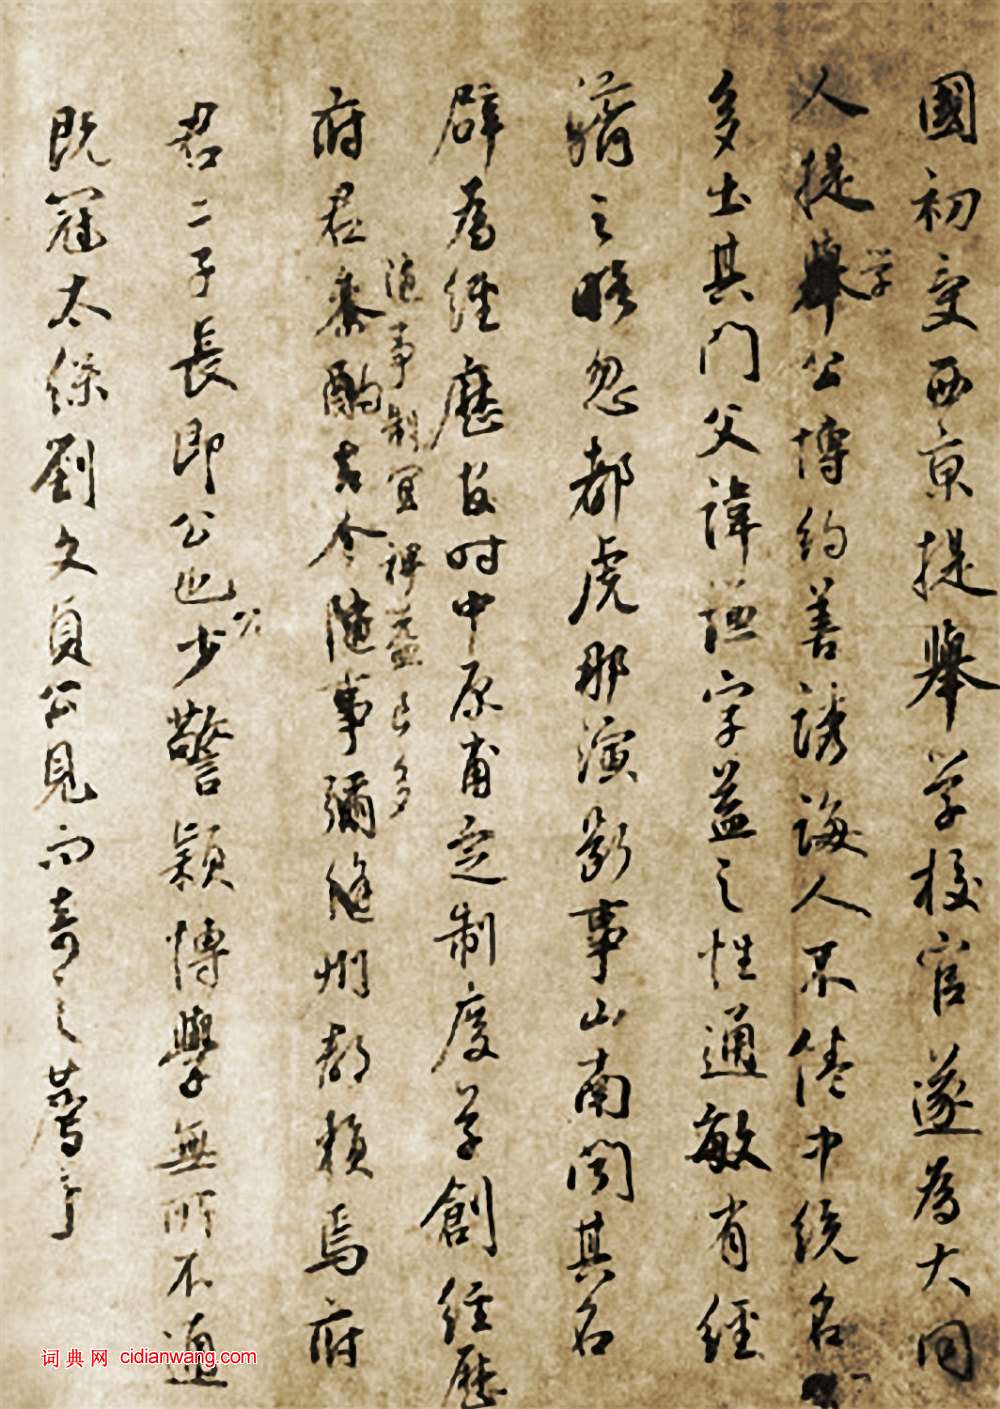 國初受西京提舉学校官遂為大同
人提舉学公博約善誘誨人不倦中統名
多出其門父諱謹字益之性通敏有經
濟之略忽都虎那演斷事山南聞其名
辟為經歷故时中原甫定制度草創經歷
隨事制宜裨益良多
府君參酌古今隨事彌縫州郡賴焉府
君二子長即公也公少警穎博學無所不通
既冠太保劉文貞公見而奇之薦于
词典网 cidianwang.com